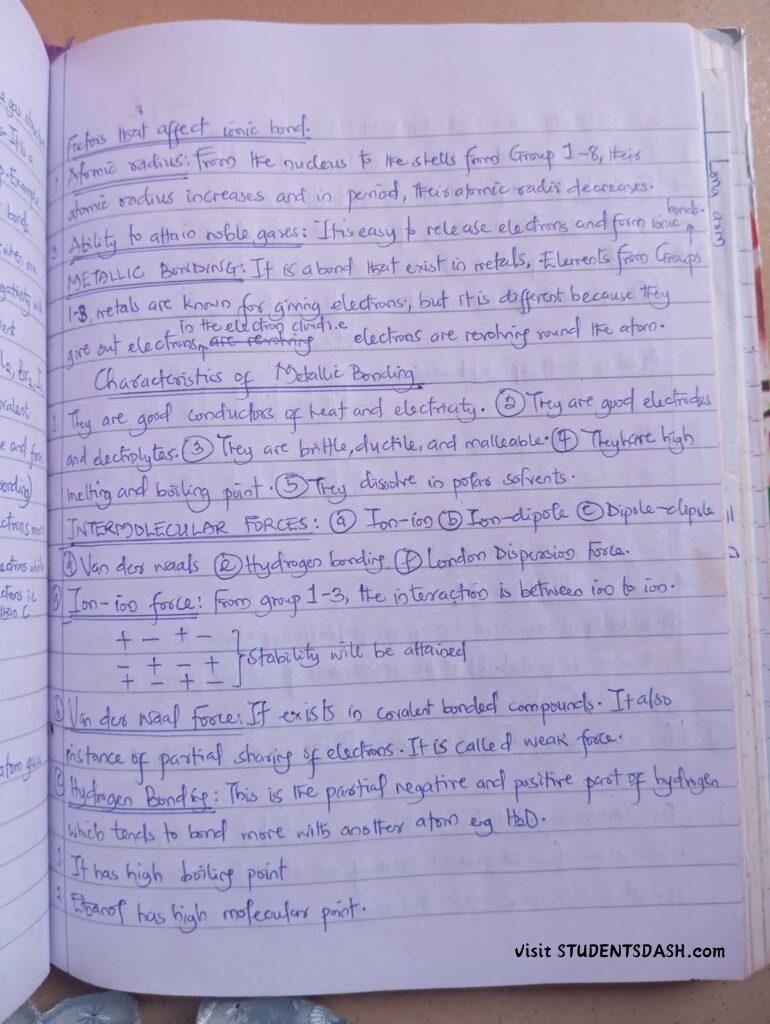 Factors that affect ionic bond:
1. Atomic radius: From the nucleus to the shells from Group 1-8, their
atomic radius increases and in period, their atomic radii decreases.
2. Ability to attain noble gases: It is easy to release electrons and form ionic bonds.
METALLIC BONDING: It is a bond that exist in metals, Elements from Groups
1-3, metals are known for giving electrons, but it is different because they
give out electrons in the electron clouds i.e are revolving electrons are revolving round the atom.
Characteristics of Metallic Bonding
1. They are good conductors of heat and electricity. ② They are good electrodes
and electrolytes. ③ They are brittle, ductile, and malleable. ④ They have high
melting and boiling point. ⑤ They dissolve in polar solvents.
INTERMOLECULAR FORCES: ⓐ Ion-ion ⓑ Ion-dipole ⓒ Dipole-dipole
ⓓ Van der waals ⓔ Hydrogen bonding ⓕ London Dispersion Force.
Ion-ion force: From group 1-3, the interaction is between ion to ion.
+ - + -
- + - + } Stability will be attained
+ - + -
Van der waal force: It exists in covalent bonded compounds. It also
instance of partial sharing of electrons. It is called weak force.
Hydrogen Bonding: This is the partial negative and positive part of hydrogen
which tends to bond more with another atom eg H2O.
1. It has high boiling point
2. Ethanol has high molecular point.
Visit STUDENTSDASH.com